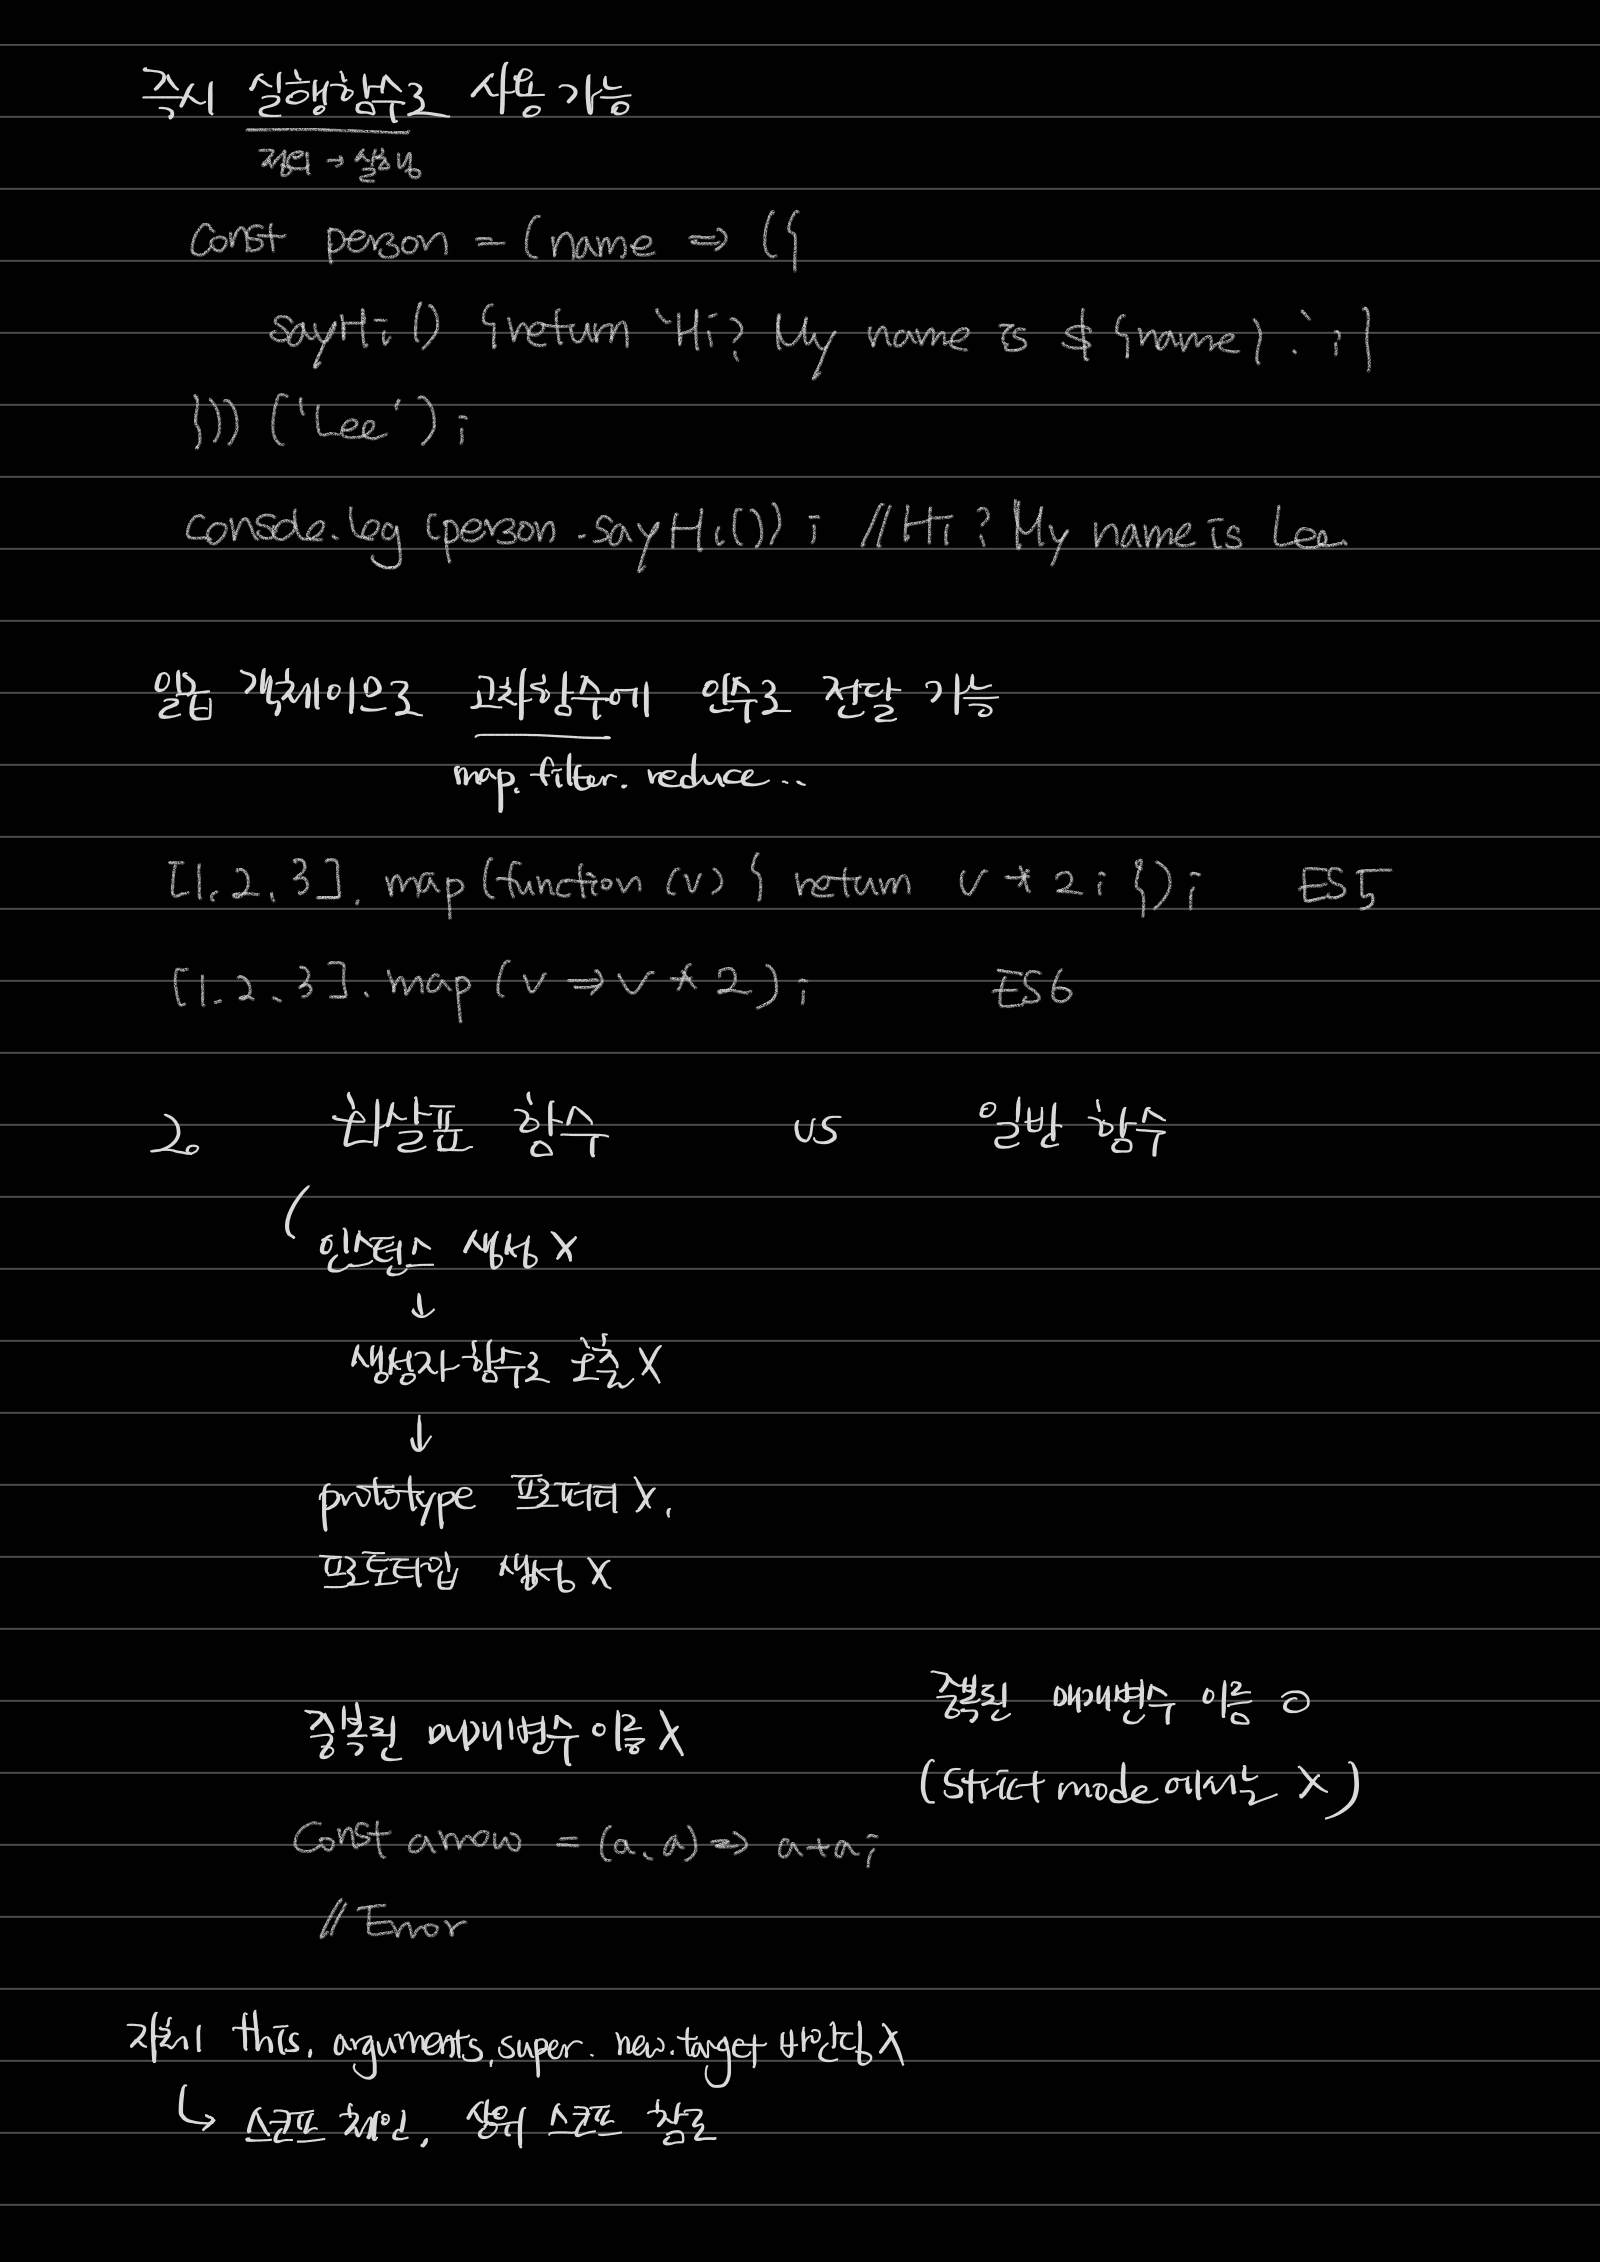 즉시 실행함수로 사용 가능
정의 → 실행
const person = (name => ({
sayHi() {return `Hi? My name is ${name}.`;}
}))('Lee');
console.log(person.sayHi()); //Hi? My name is Lee.
일급 객체이므로 고차함수에 인수로 전달 가능
map, filter, reduce..
[1, 2, 3].map(function (v) { return v * 2; });   ES5
[1, 2, 3].map(v => v * 2);   ES6
2. 화살표 함수 vs 일반 함수
(인스턴스 생성 X
↓
생성자 함수로 호출 X
↓
prototype 프로퍼티 X,
프로토타입 생성 X
중복된 매개변수 이름 X
중복된 매개변수 이름 O
(strict mode에서는 X)
const arrow = (a, a) => a+a;
//Error
자체 this, arguments, super, new.target 바인딩 X
↳ 스코프 체인, 상위 스코프 참조